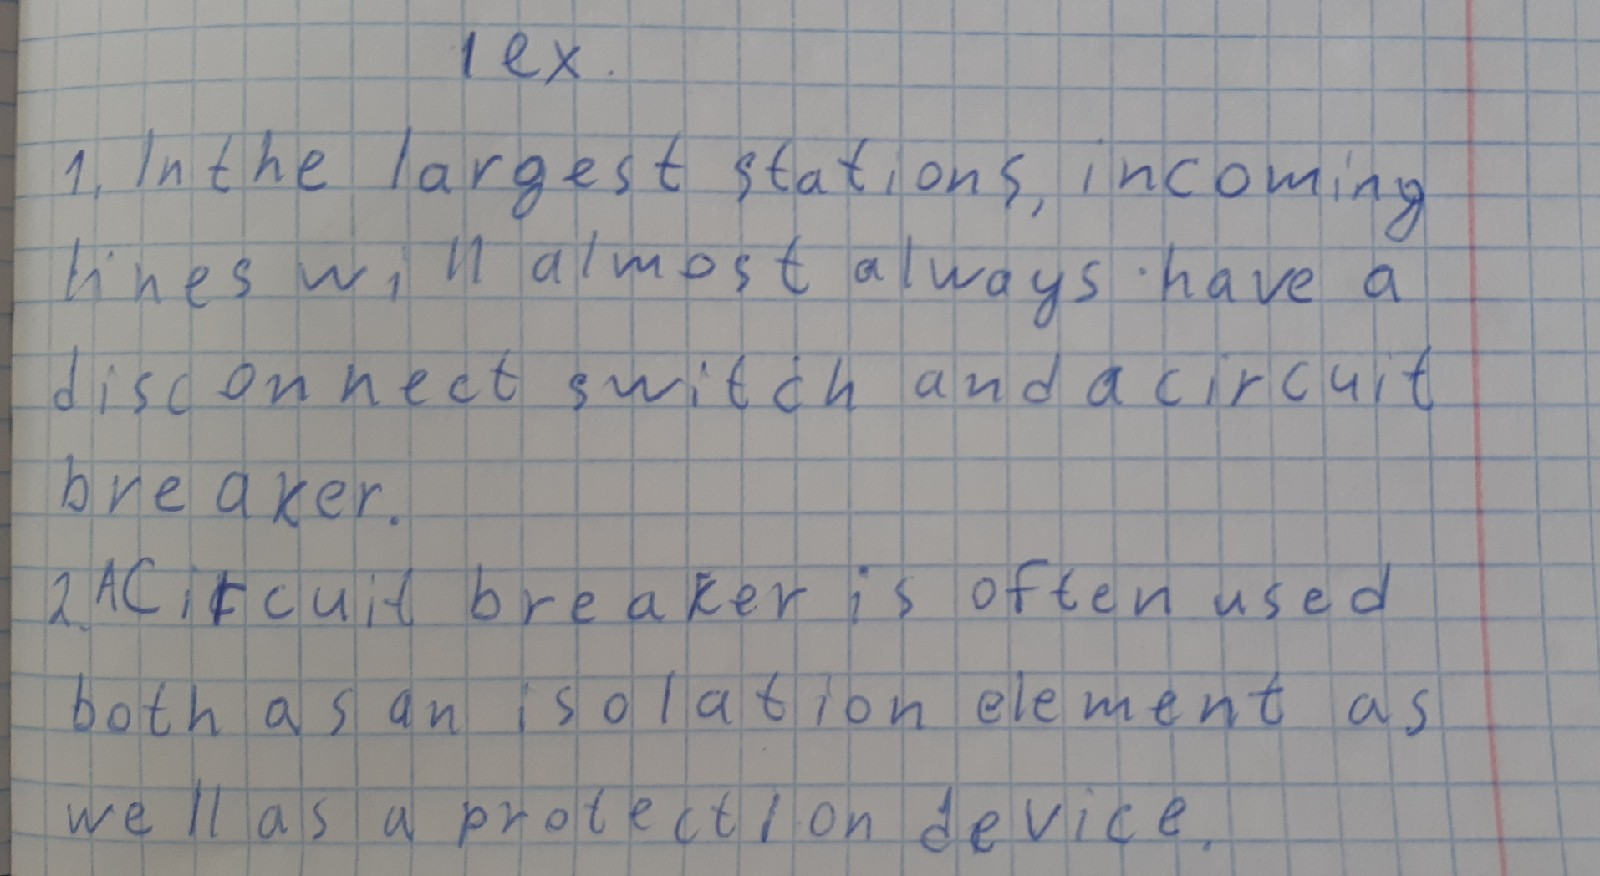 1 ex.
1. In the largest stations, incoming
lines will almost always have a
disconnect switch and a circuit
breaker.
2. A Circuit breaker is often used
both as an isolation element as
well as a protection device.